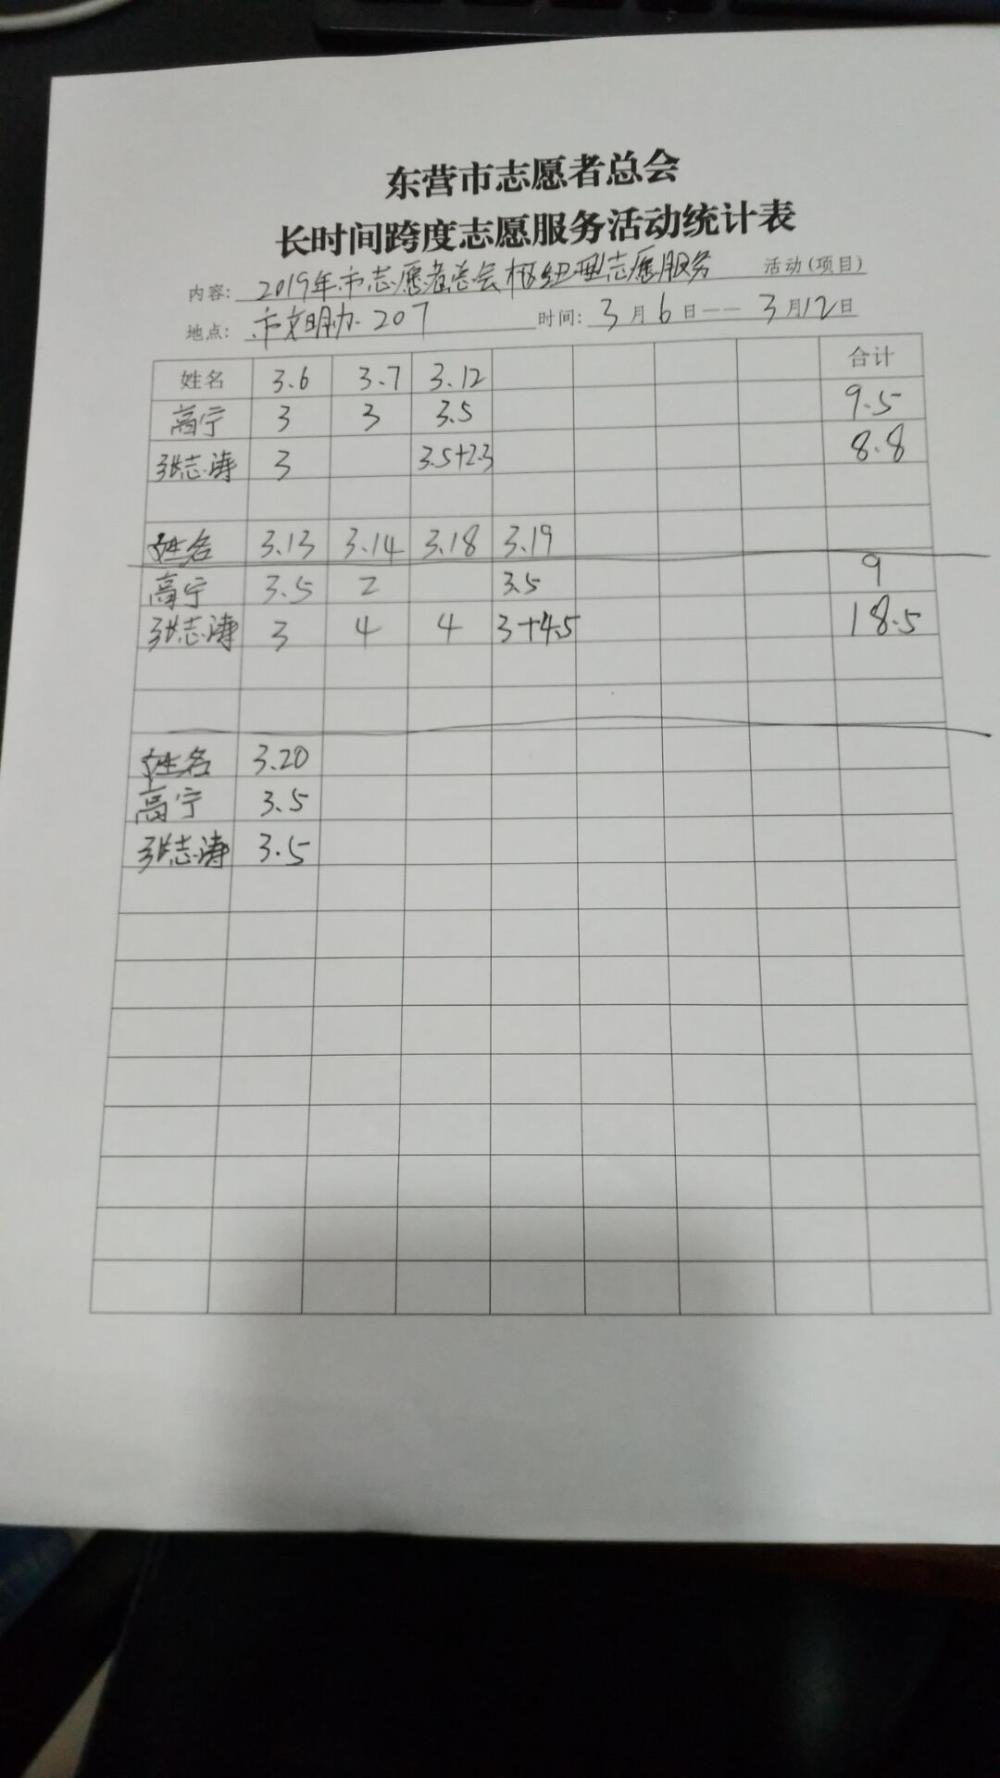 东营市志愿者总会
长时间跨度志愿服务活动统计表
内容: 2019年市志愿者总会枢纽型志愿服务 活动(项目)
地点: 市文明办207 时间: 3月6日——3月12日
姓名 3.6 3.7 3.12 合计
高宁 3 3 3.5 9.5
张志涛 3 3.5+2.3 8.8
姓名 3.13 3.14 3.18 3.19
高宁 3.5 2 3.5 9
张志涛 3 4 4 3+4.5 18.5
姓名 3.20
高宁 3.5
张志涛 3.5